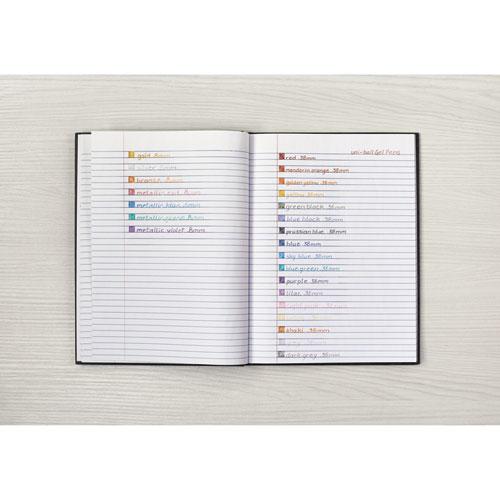 gold .8mm
silver .8mm
bronze .8mm
metallic red .8mm
metallic blue .8mm
metallic green .8mm
metallic violet .8mm
uni-ball Gel Pens
red .38mm
mandarin orange .38mm
golden yellow .38mm
yellow .38mm
green black .38mm
blue black .38mm
prussian blue .38mm
blue .38mm
sky blue .38mm
blue green .38mm
purple .38mm
lilac .38mm
.38mm
khaki .38mm
.38mm
dark grey .38mm